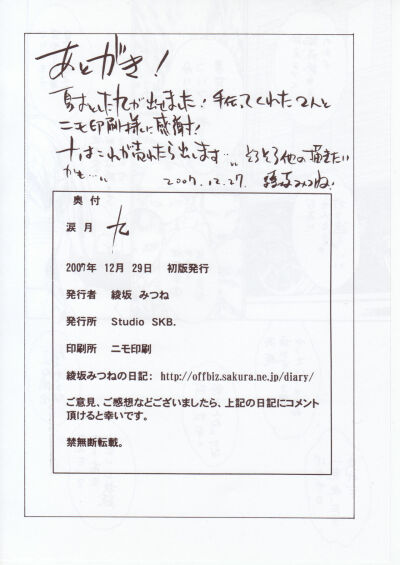 あとがき！
夏おとした九が出せました！手伝ってくれた2人と
ニモ印刷様に感謝！
十はこれが売れたら出します… そろそろ他の描きたい
かも…
2007.12.27. 綾坂みつね
奥 付
涙 月 九
2007年 12月 29日 初版発行
発行者 綾坂 みつね
発行所 Studio SKB.
印刷所 ニモ印刷
綾坂みつねの日記: http://offbiz.sakura.ne.jp/diary/
ご意見、ご感想などございましたら、上記の日記にコメント
頂けると幸いです。
禁無断転載。